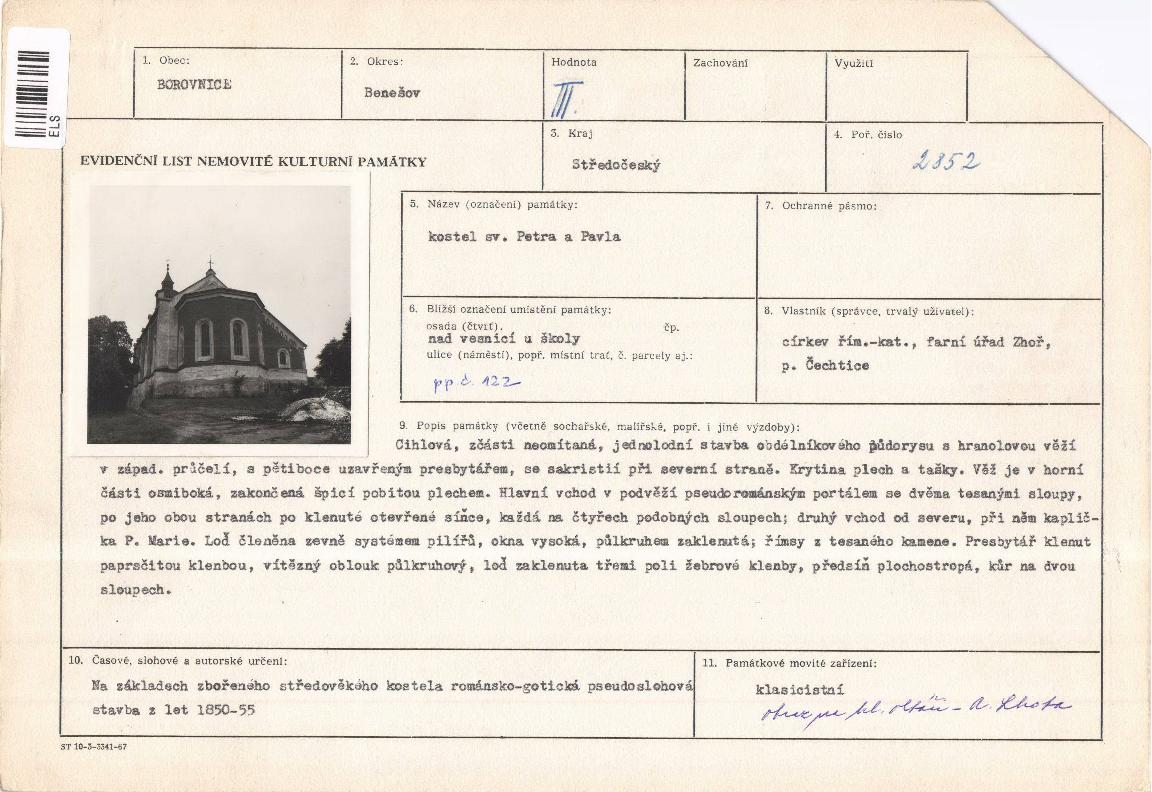 1. Obec:
BOROVNICE
2. Okres:
Benešov
Hodnota
III.
Zachování
Využití
ELS
EVIDENČNÍ LIST NEMOVITÉ KULTURNÍ PAMÁTKY
3. Kraj
Středočeský
4. Poř. číslo
2852
5. Název (označení) památky:
kostel sv. Petra a Pavla
7. Ochranné pásmo:
6. Bližší označení umístění památky:
osada (čtvrť). čp.
nad vesnicí u školy
ulice (náměstí), popř. místní trať, č. parcely aj.:
pp.č. 122
8. Vlastník (správce, trvalý uživatel):
církev řím.-kat., farní úřad Zhoř,
p. Čechtice
9. Popis památky (včetně sochařské, malířské, popř. i jiné výzdoby):
Cihlová, zčásti neomítaná, jednolodní stavba obdélníkového půdorysu s hranolovou věží
v západ. průčelí, s pětiboce uzavřeným presbytářem, se sakristií při severní straně. Krytina plech a tašky. Věž je v horní
části osmiboká, zakončená špicí pobitou plechem. Hlavní vchod v podvěží pseudorománským portálem se dvěma tesanými sloupy,
po jeho obou stranách po klenuté otevřené síňce, každá na čtyřech podobných sloupech; druhý vchod od severu, při něm kaplič-
ka P. Marie. Loď členěna zevně systémem pilířů, okna vysoká, půlkruhem zaklenutá; římsy z tesaného kamene. Presbytář klenut
paprsčitou klenbou, vítězný oblouk půlkruhový, loď zaklenuta třemi poli žebrové klenby, předsíň plochostropá, kůr na dvou
sloupech.
10. Časové, slohové a autorské určení:
Na základech zbořeného středověkého kostela románsko-gotická pseudoslohová
stavba z let 1850-55
11. Památkové movité zařízení:
klasicistní
obraz na hl. oltáři - A. Lhota
ST 10-3-3341-67